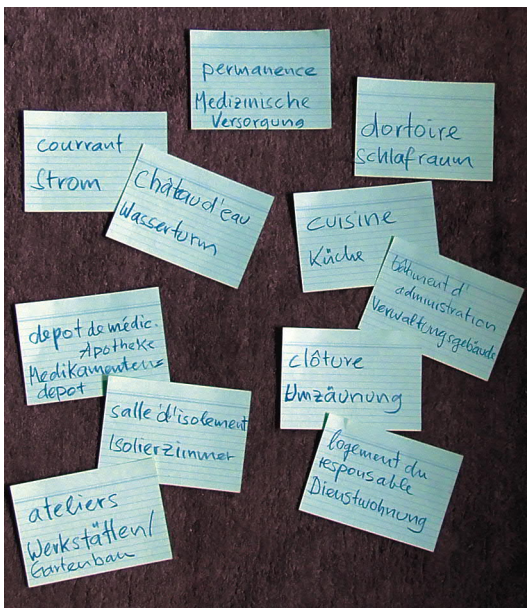 permanence
Medizinische
Versorgung
dortoire
Schlafraum
courrant
Strom
château d'eau
Wasserturm
cuisine
Küche
bâtiment d'
administration
Verwaltungsgebäude
depot de médic.
Apotheke
Medikamenten=
depot
clôture
Umzäunung
salle d'isolement
Isolierzimmer
logement du
responsable
Dienstwohnung
ateliers
Werkstätten/
Gartenbau